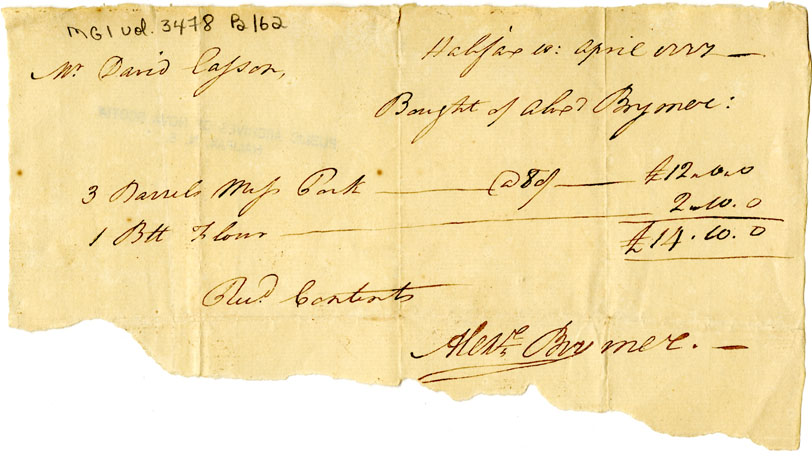 MG1 vol. 3478 B162
Halifax 10: April 1777
Mr David Casson,
Bought of Alexd Brymer:
3 Barrels Mess Pork @ 80/ £12.0.0
1 Bll Flour 2.10.0
£14.10.0
Recd Contents
Alexr Brymer.